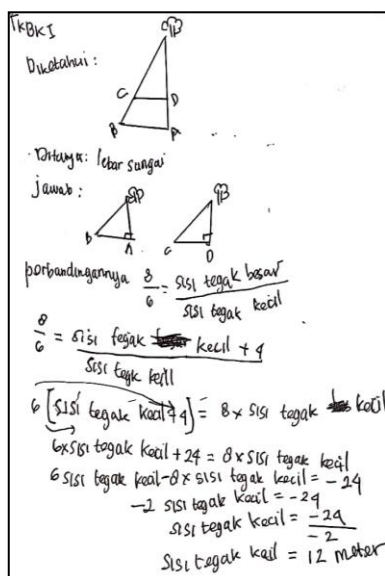 TKBKI
P
Diketahui:
C D
B A
Ditanya: lebar sungai
jawab:
P P
B A C D
perbandingannya 8/6 = sisi tegak besar / sisi tegak kecil
8/6 = sisi tegak kecil + 4 / sisi tegk kecil
6 [sisi tegak kecil + 4] = 8 x sisi tegak kecil
6 x sisi tegak kecil + 24 = 8 x sisi tegak kecil
6 sisi tegak kecil - 8 x sisi tegak kecil = -24
-2 sisi tegak kecil = -24
sisi tegak kecil = -24 / -2
sisi tegak kecil = 12 meter